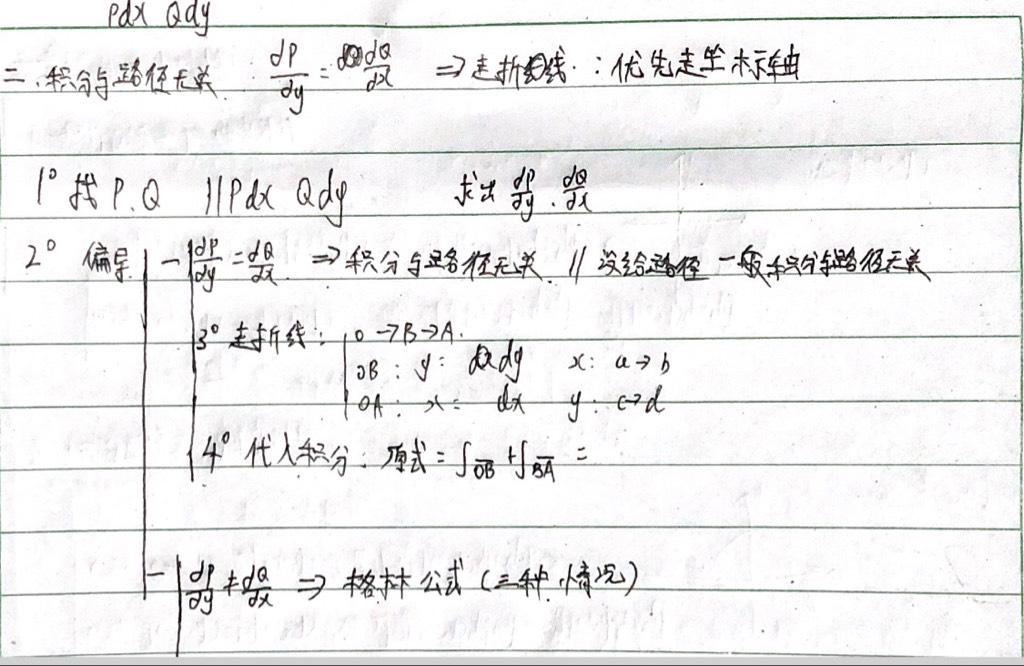 Pdx Qdy
二.积分与路径无关 dP/dy = dQ/dx ⇒ 走折线:优先走坐标轴
1° 找P.Q ||Pdx Qdy 求出 dP/dy . dQ/dx
2° 偏导 dP/dy = dQ/dx ⇒ 积分与路径无关 // 没给路径 一般积分与路径无关
3° 走折线: O→B→A.
OB: y: dy x: a→b
OA: x: dx y: c→d
4° 代入积分. 原式 = ∫OB + ∫BA =
dP/dy ≠ dQ/dx ⇒ 格林公式(三种情况)